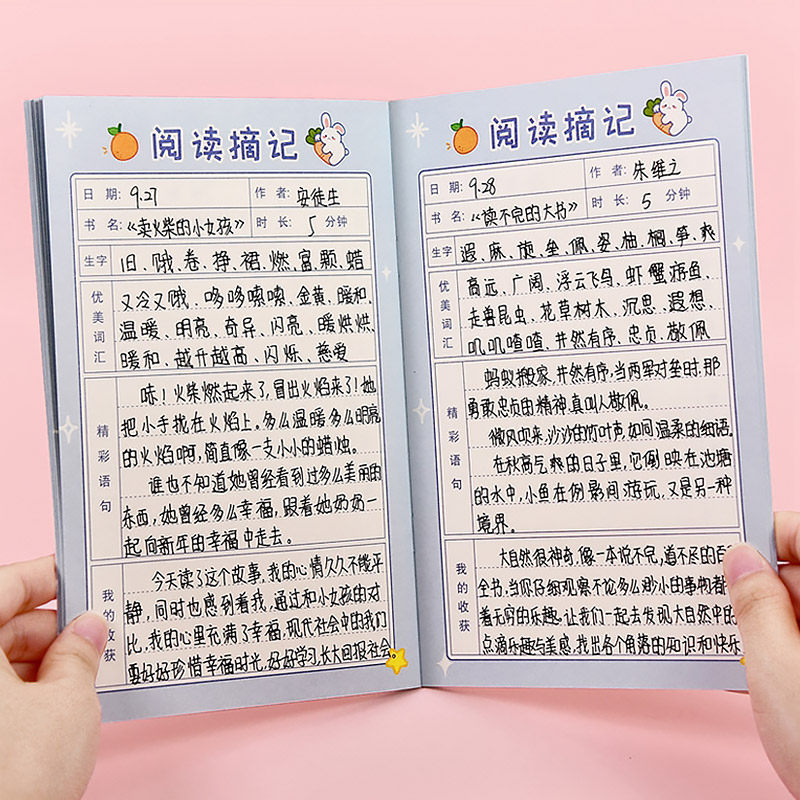 阅读摘记
日 期: 9.27 作 者: 安徒生
书 名: 《卖火柴的小女孩》 时 长: 5 分钟
生字 旧、哦、卷、挣、裙、燃、富、颗、蜡
优美词汇
又冷又哦、哆哆嗦嗦、金黄、暖和、
温暖、明亮、奇异、闪亮、暖烘烘、
暖和、越升越高、闪烁、慈爱
精彩语句
哧!火柴燃起来了,冒出火焰来了!她
把小手拢在火焰上。多么温暖多么明亮
的火焰啊,简直像一支小小的蜡烛。
谁也不知道她曾经看到过多么美丽的
东西,她曾经多么幸福,跟着她奶奶一
起向新年的幸福中走去。
我的收获
今天读了这个故事,我的心情久久不能平
静,同时也感到着我,通过和小女孩的对
比,我的心里充满了幸福,现代社会中的我们
要好好珍惜幸福时光,好好学习,长大回报社会
阅读摘记
日 期: 9.28 作 者: 朱维之
书 名: 《读不完的大书》 时 长: 5 分钟
生字 遐、麻、旋、垒、佩、姿、柚、桐、笋、爽
优美词汇
高远、广阔、浮云飞鸟、虾蟹游鱼、
走兽昆虫、花草树木、沉思、遐想、
叽叽喳喳、井然有序、忠贞、敬佩
精彩语句
蚂蚁搬家,井然有序,当两军对垒时,那
勇敢忠贞的精神,真叫人敬佩。
微风吹来,沙沙的竹叶声,如同温柔的细语。
在秋高气爽的日子里,它倒映在池塘
的水中,小鱼在倒影间游玩,又是另一种
境界。
我的收获
大自然很神奇,像一本说不完,道不尽的百
全书,当你仔细观察不论多么渺小的事物都
着无穷的乐趣,让我们一起去发现大自然中的
点滴乐趣与美感,找出各个角落的知识和快乐